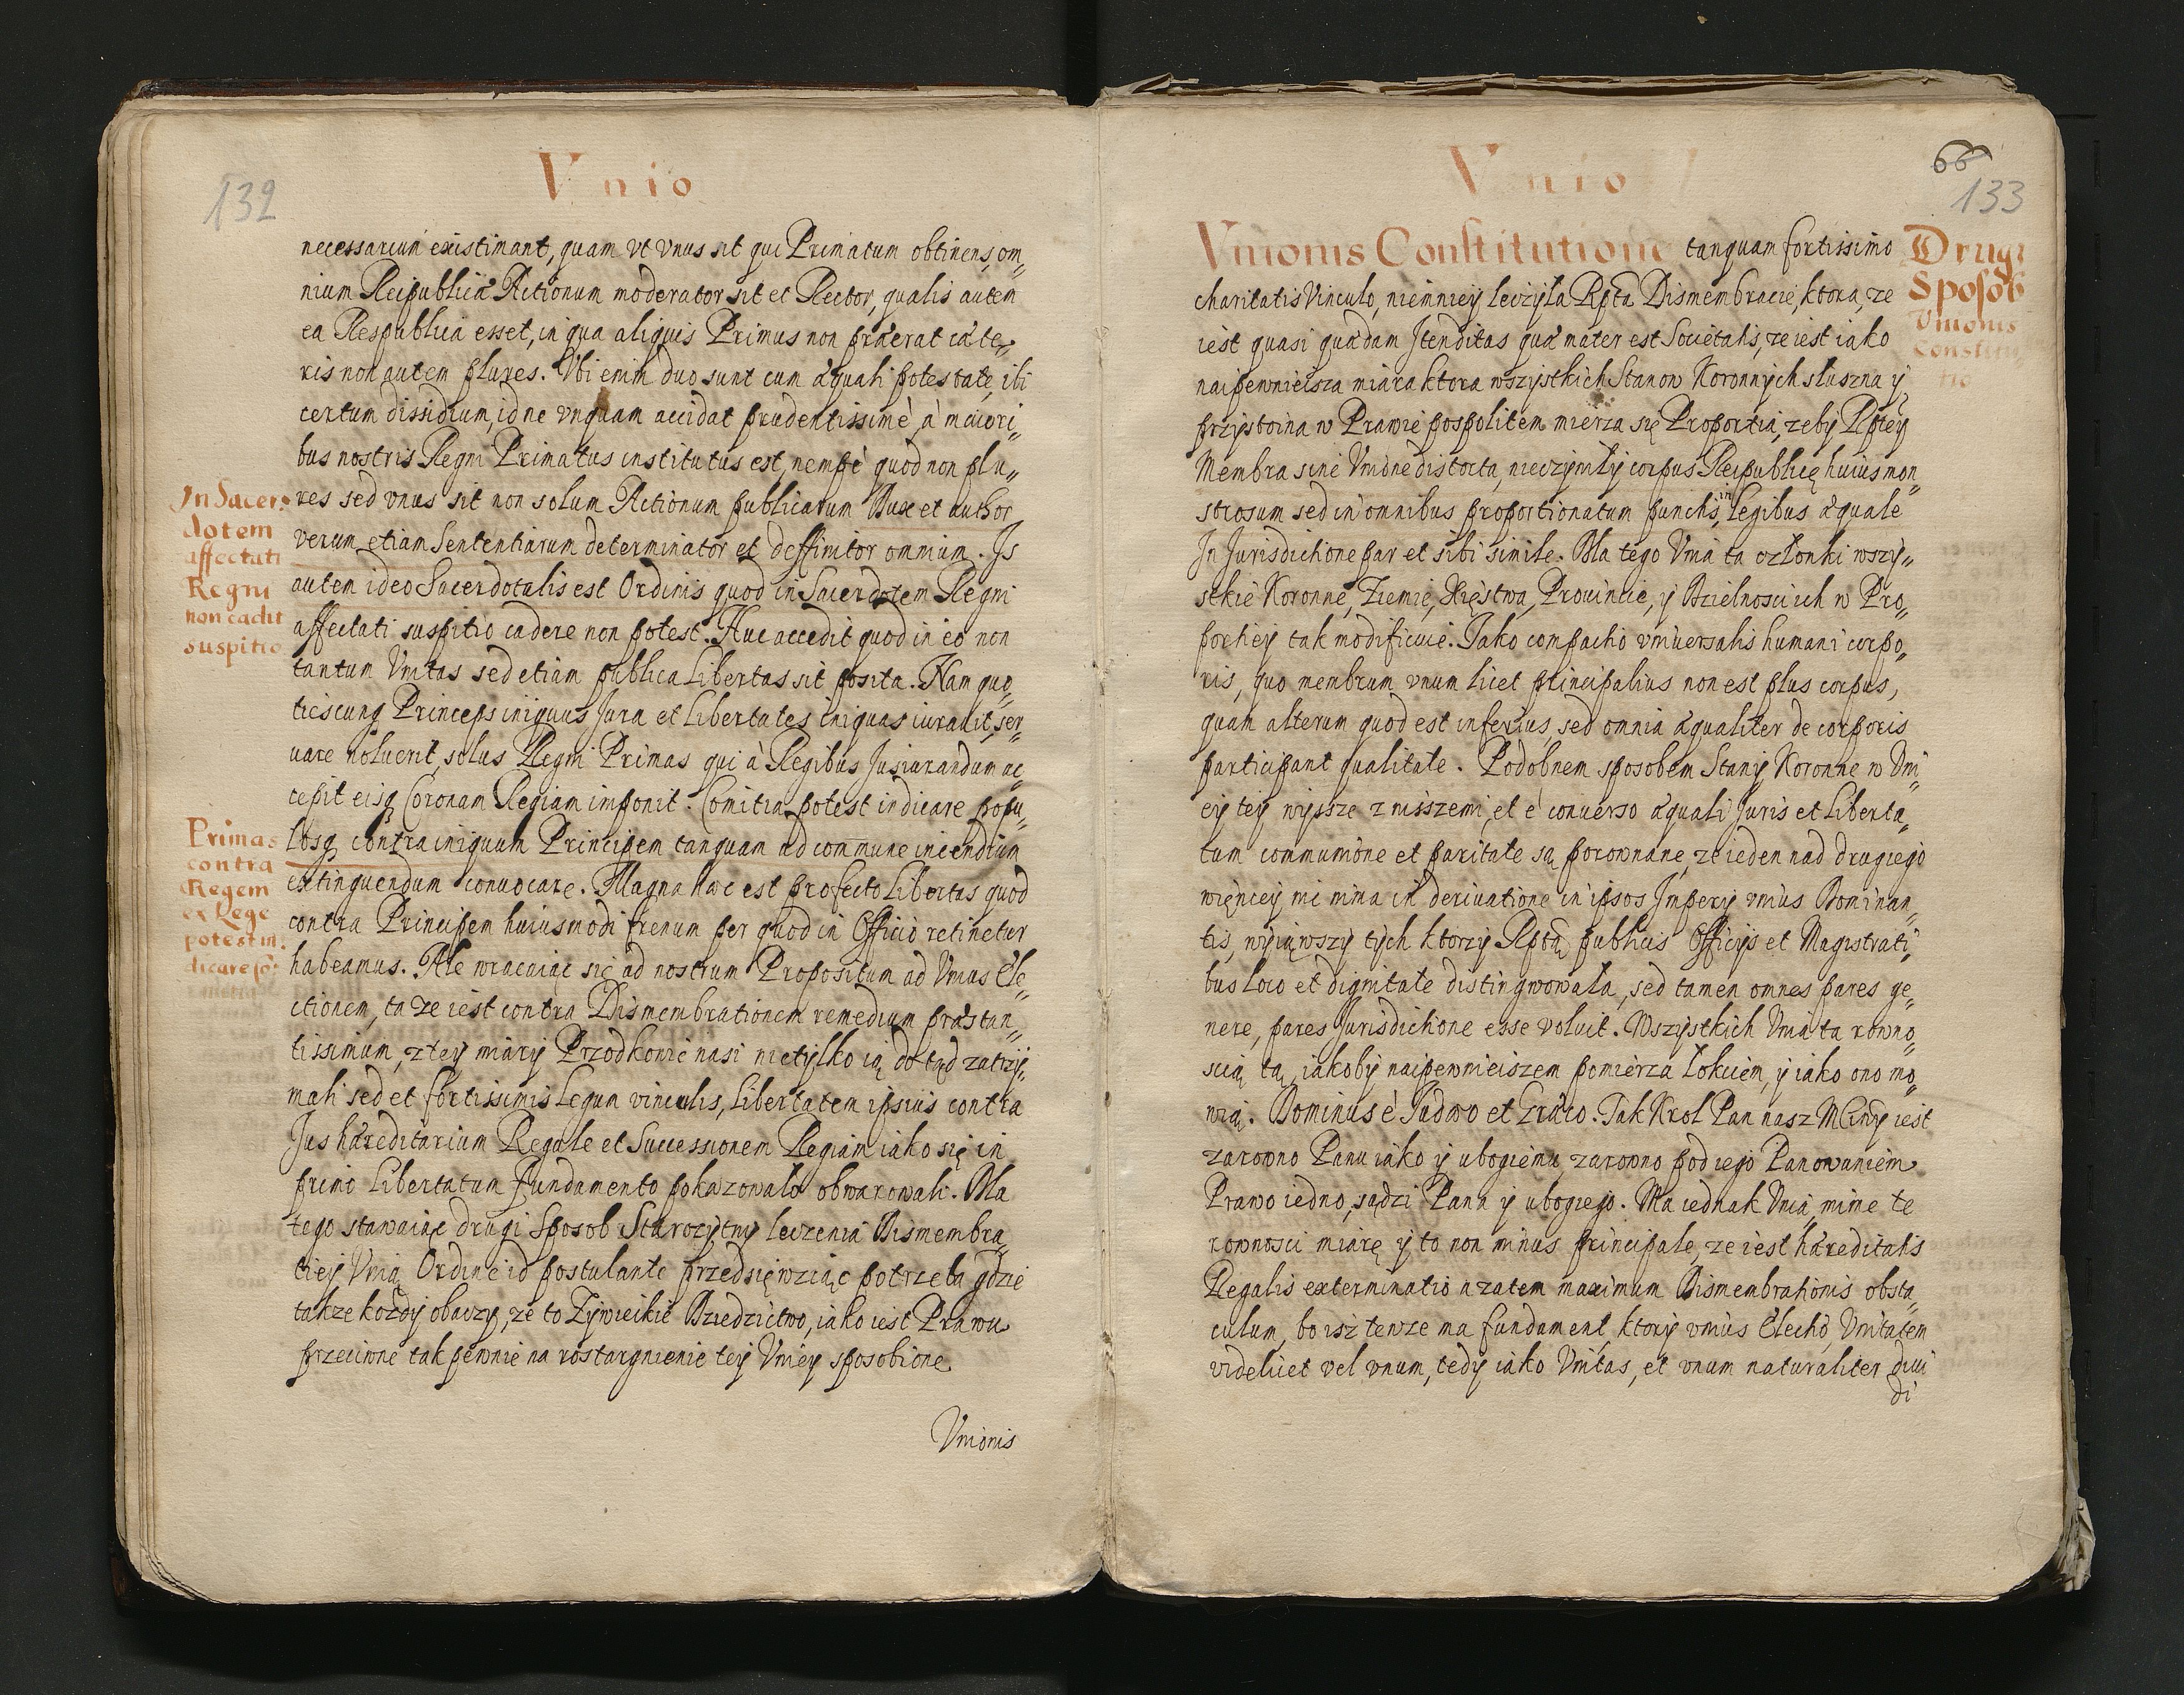 132
Vnio
necessarium existimant, quam vt vnus sit qui Primatum obtinens, om„
nium Reipublicæ Actionum moderator sit et Rector, qualis autem
ea Respublica esset, in qua aliquis Primus non præerat cæte„
ris non autem plures. Vbi enim duo sunt cum æquali potestate, ibi
certum dissidium, id ne vnquam accidat prudentissimè à maiori„
bus nostris Regni Primatus institutus est, nempè quod non plu„
res sed vnus sit non solum Actionum publicarum Dux et author,
verum etiam Sententiarum determinator et deffinitor omnium. Is
autem ideo Sacerdotalis est Ordinis quod in Sacerdotem Regni
affectati suspitio cadere non potest. Huc accedit quod in eo non
tantum Vnitas sed etiam publica Libertas sit posita. Nam quo„
ties cunq Princeps iniquus Jura et Libertates iniquas iurauit, ser„
uare noluerit, solus Regni Primas qui à Regibus Jusiurandum ac„
cepit eisq Coronam Regiam imponit. Comitia potest indicare popu„
losq contra iniquum Principem tanquam ad commune incendium
extinguendum conuocare. Magna hæc est profecto Libertas quod
contra Principem huiusmodi frenum per quod in Officio retinetur
habeamus. Ale wracaiąc się ad nostrum Propositum ad Vnius Ele„
ctionem, ta ze iest contra Dismembrationem remedium præstan„
tissimum, z tey miary Przodkowie nasi nie tylko ią dotąd zatrzy„
mali sed et fortissimis Legum vinculis, Libertatem ipsius contra
Jus hæreditarium Regale et Successionem Regiam iako się in
primo Libertatum fundamento pokazowało obwarowali. Dla
tego stawaiąc drugi Sposob Starozytny leczenia Dismembra„
tiey Vnią Ordine id postulante przedsięwziąc potrzeba gdzie
takze kozdy obaczy, ze to Zywieckie Dziedzictwo, iako iest Prawu
przeciwne tak pewnie na rostargnienie tey Vniey sposobione.
Vnionis
In Sacer„
dotem
affectati
Regni
non cadit
suspitio
Primas
contra
Regem
ex Lege
potest in„
dicare
66
133
Vnio
Vnionis Constitutione tanquam fortissimo
charitatis Vinculo, niemniey leczyla Rptā Dismembracie, ktora, ze
iest quasi quædam Identitas quæ mater est Societatis, ze iest iako
naipewnieisza miara ktora wszystkich Stanow Koronnych słuszna y
przystoina w Prawie pospolitem mierza się Proportia, zeby Rptey
Membra sine Vnione distorta, nieczyniły corpus Reipublicę huius mon„
strosum sed in omnibus proportionatum punctis, in legibus æquale
In Jurisdictione par et sibi simile. Dla tego Vnia ta członki wszy„
stkie Koronne, Ziemie, Xięstwa, Prouincie, y Dzielnosci ich w Pro„
portiey tak modificuie. Iako compactio vniuersalis humani corpo„
ris, quo membrum vnum licet principalius non est plus corpus,
quam alterum quod est inferius, sed omnia æqualiter de corporis
participant qualitate. Podobnem sposobem Stany Koronne w Vni
ey tey wyssze z nisszemi, et è conuerso æquali Juris et Liberta„
tum communione et paritate są porownane, ze ieden nad drugiego
więncey nie ma in deriuatione in ipsos Impery vnius Dominan„
tis, wyiąwszy tych ktorzy Rptā publicis Officijs et Magistrati„
bus loco et dignitate distingwowała, sed tamen omnes pares ge„
nere, pares Jurisdictione esse voluit. Wszystkich Vnia ta rowno„
scią tą, iakoby naipewnieiszem pomierza łokciem, y iako ono mo„
wią. Dominus è Judæo et Græco. Tak Krol Pan nasz Mciwy iest
zarowno Panu iako y ubogiemu, zarowno pod iego Panowaniem
Prawo iedno, sądzi Pana y ubogiego. Ma iednak Vnia, mime te
rownosci miarę y to non minus principale, ze iest hæreditatis
Regalis exterminatio a zatem maximum Dismembrationis obsta„
culum, bo isz tenze ma fundament, ktory vnius Electio, Vnitatem
videlicet vel vnum, tedy iako Vnitas, et vnum naturaliter diui
di
Drugi
Sposob
Vnionis
Constitu
tio